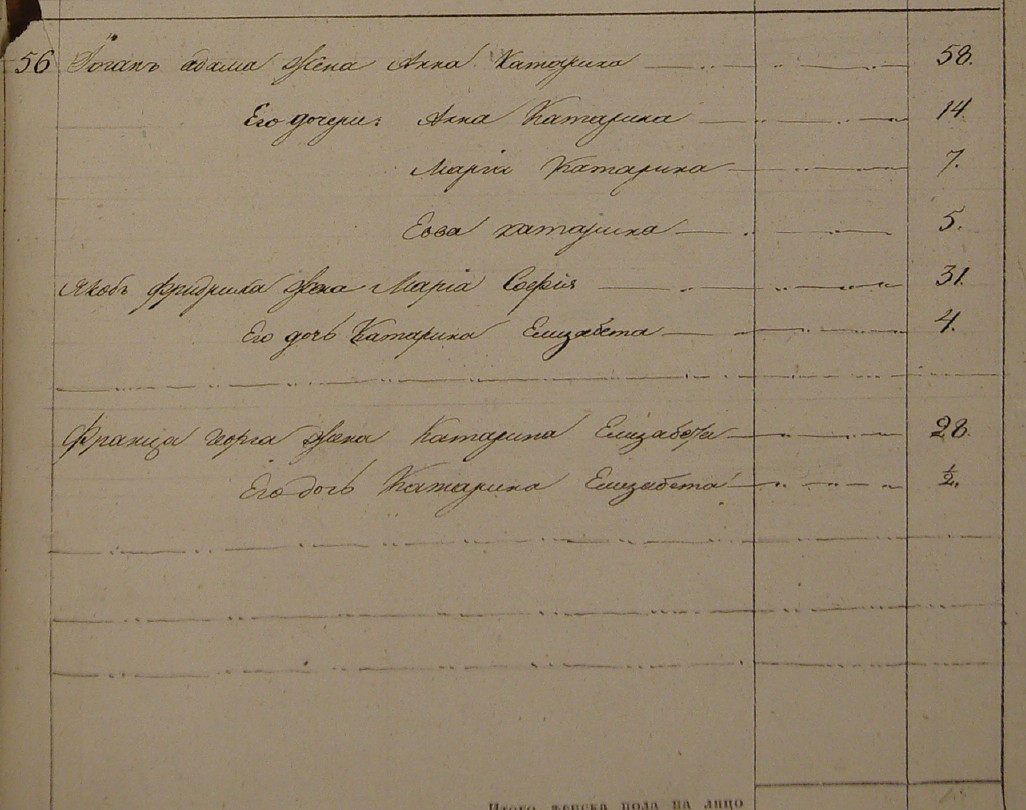 56 Іоганъ адама Жена Анна Катарина 58.
Его дочери: Анна Катарина 14.
Марія Катарина 7.
Еова катарина 5.
Якобъ фридриха Жена Маріа Софія 31.
Его дочь Катарина Елизабета 4.
Франца георга Жена Катарина Елизабета 28.
Его дочь Катарина Елизабета 1/2.
Итого женска пола на лицо